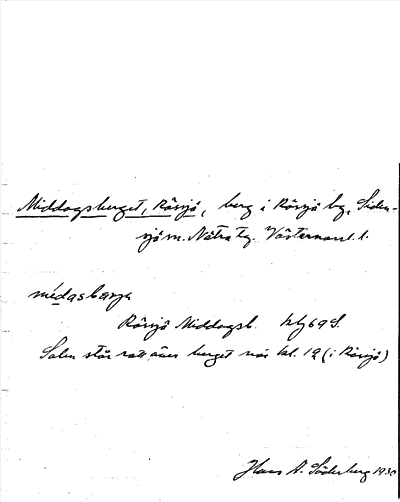 Middagsberget, Rörsjö, berg i Rörsjö by, Siden-
sjö sn. Nätra tg. Västernorrl. l.
médasbarja
Rörsjö Middagsb. hbj 69 S.
Solen står rätt över berget när kl. 12 (i Rörsjö)
Hans A. Söderberg 1930